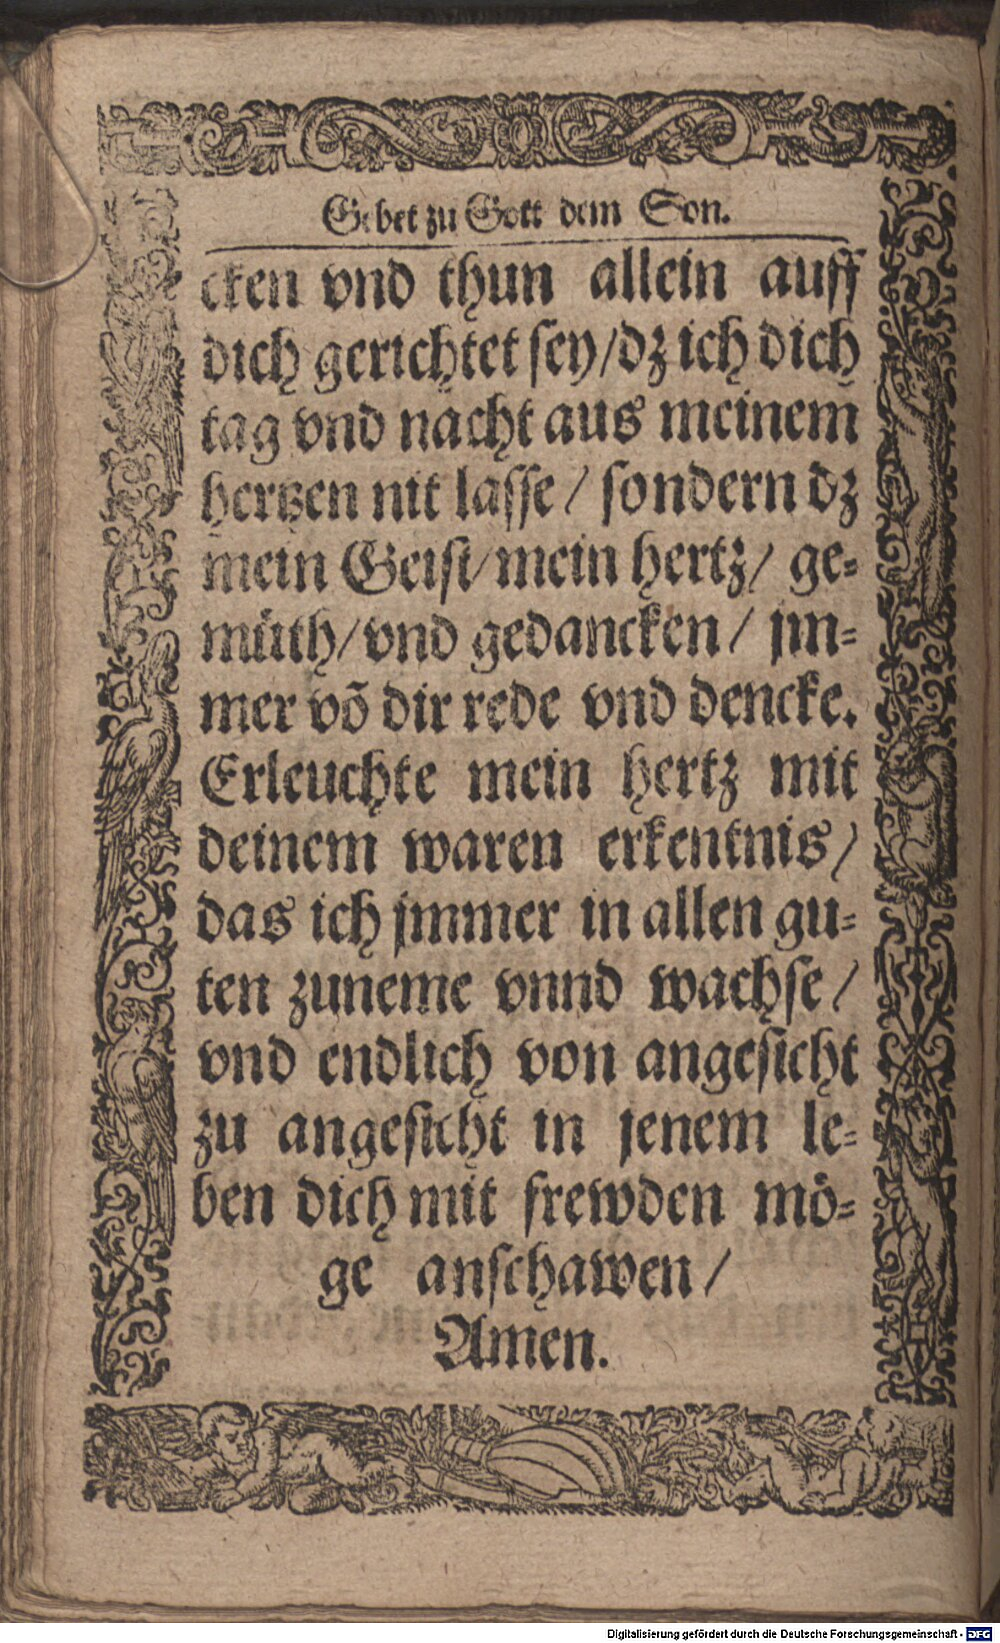 Gebet zu Gott dem Son.
cken vnd thun allein auff
dich gerichtet sey/dz ich dich
tag vnd nacht aus meinem
hertzen nit lasse/ sondern dz
mein Geist/mein hertz/ ge-
müth/vnd gedancken/ jm-
mer võ dir rede vnd dencke.
Erleuchte mein hertz mit
deinem waren erkentnis/
das ich jmmer in allen gu-
ten zuneme vnnd wachse/
vnd endlich von angesicht
zu angesicht in jenem le-
ben dich mit frewden mö-
ge anschawen/
Amen.
Digitalisierung gefördert durch die Deutsche Forschungsgemeinschaft - DFG